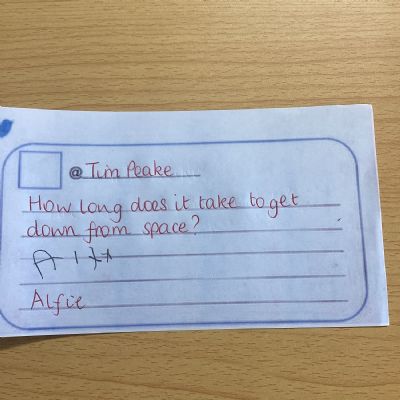 @ Tim Peake
How long does it take to get
down from space?
Alfie